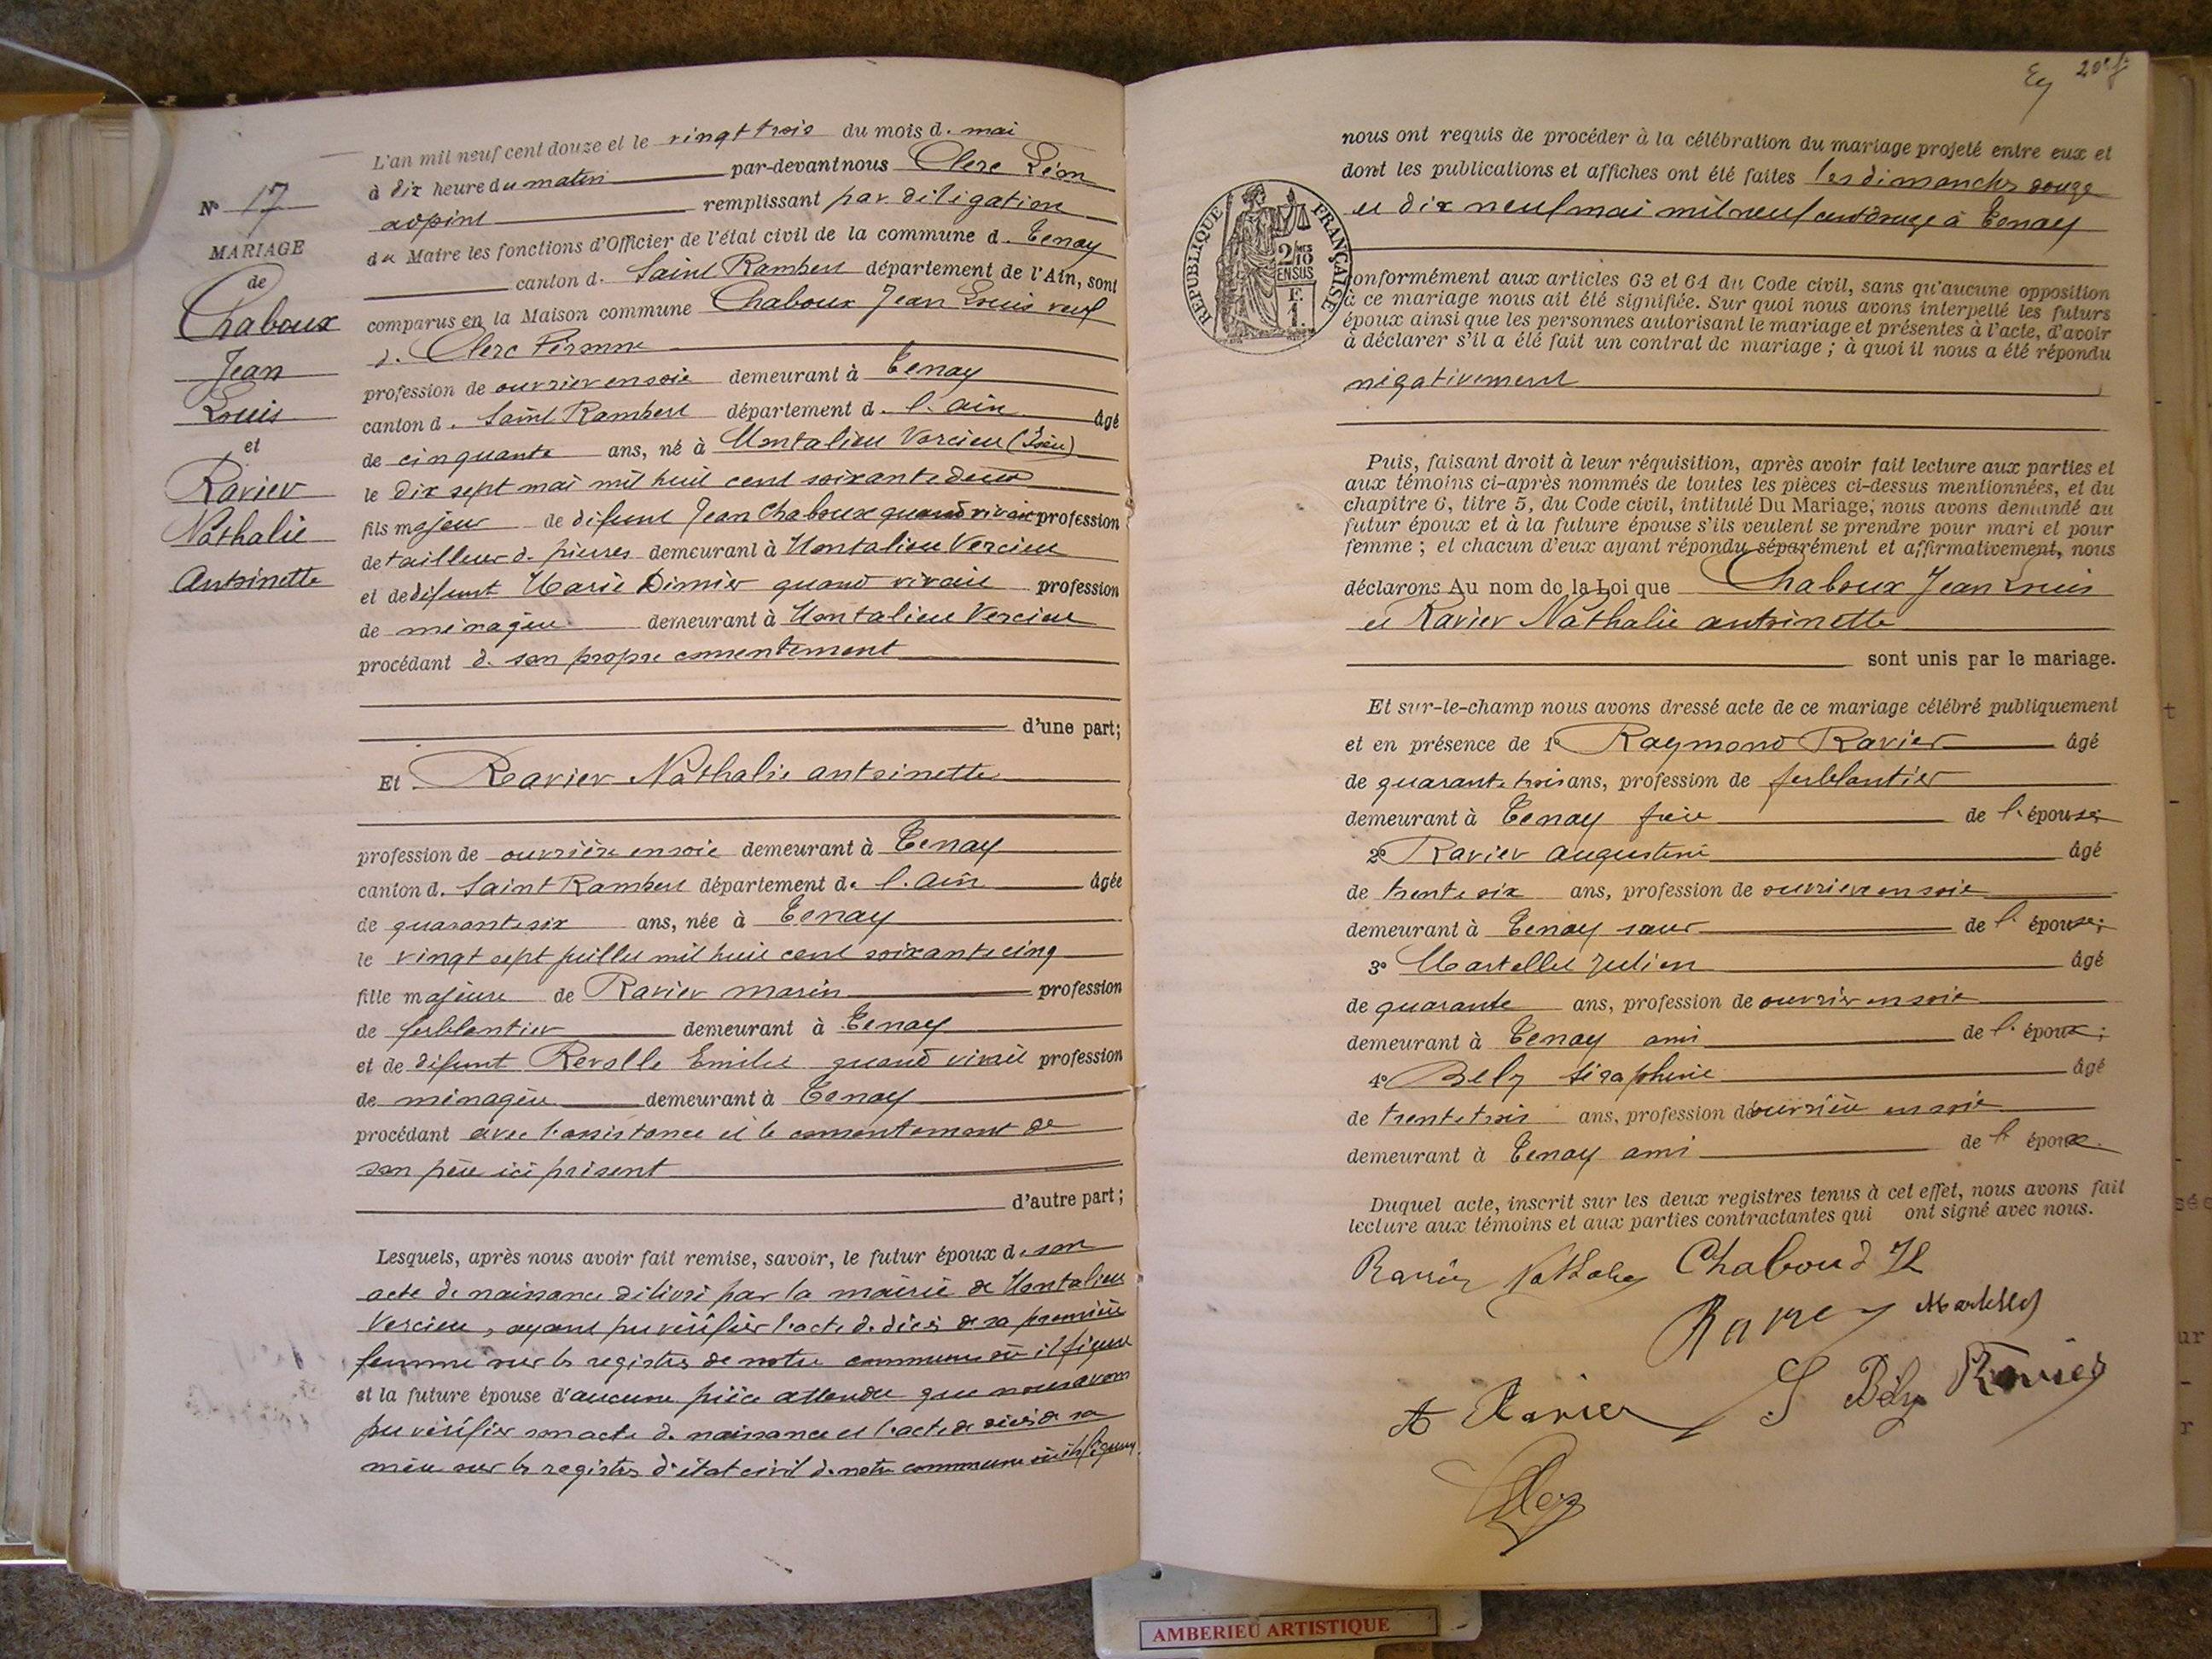 L'an mil neuf cent douze et le vingt trois du mois d. mai
à dix heure du matin par-devant nous Clerc Léon
adjoint remplissant par diligation
du Maire les fonctions d'Officier de l'état civil de la commune d. Tenay
canton d. Saint Rambert département de l'Ain, sont
comparus en la Maison commune Chaboux Jean Louis veuf
d. Clerc
profession de ouvrier en soie demeurant à Tenay
canton d. Saint Rambert département d. l. ain âgé
de cinquante ans, né à Montalieu Vercieu (Isère)
le dix sept mai mil huit cent soixante deux
fils majeur de défunt Jean Chaboux quand vivait profession
de tailleur d. pierres demeurant à Montalieu Vercieu
et de défunt Marie Dimier quand vivait profession
de ménagère demeurant à Montalieu Vercieu
procédant d. son propre consentement
d'une part;
N° 17
MARIAGE
de
Chaboux
Jean
Louis
et
Ravier
Nathalie
Antoinette
Et Ravier Nathalie antoinette
profession de ouvrière en soie demeurant à Tenay
canton d. Saint Rambert département d. l. ain âgée
de quarante six ans, née à Tenay
le vingt sept juillet mil huit cent soixante cinq
fille majeure de Ravier marin profession
de ferblantier demeurant à Tenay
et de défunt Revolle Emilie quand vivait profession
de ménagère demeurant à Tenay
procédant avec l'assistance et le consentement de
son père ici présent
d'autre part;
Lesquels, après nous avoir fait remise, savoir, le futur époux d. son
acte de naissance délivré par la mairie de Montalieu
Vercieu, ayant pu vérifier l'acte d. décès de sa première
femme sur les registres de notre commune où il figure
et la future épouse d'aucune pièce attendu que nous avons
pu vérifier son acte d. naissance et l'acte de décès de sa
mère sur les registres d'état civil d. notre commune où ils figurent.
Ey
nous ont requis de procéder à la célébration du mariage projeté entre eux et
dont les publications et affiches ont été faites les dimanches douze
et dix neuf mai mil neuf cent douze à Tenay
RÉPUBLIQUE FRANÇAISE
2/10 EN SUS
F.
1.
conformément aux articles 63 et 64 du Code civil, sans qu'aucune opposition
à ce mariage nous ait été signifiée. Sur quoi nous avons interpellé les futurs
époux ainsi que les personnes autorisant le mariage et présentes à l'acte, d'avoir
à déclarer s'il a été fait un contrat de mariage ; à quoi il nous a été répondu
négativement
Puis, faisant droit à leur réquisition, après avoir fait lecture aux parties et
aux témoins ci-après nommés de toutes les pièces ci-dessus mentionnées, et du
chapitre 6, titre 5, du Code civil, intitulé Du Mariage, nous avons demandé au
futur époux et à la future épouse s'ils veulent se prendre pour mari et pour
femme ; et chacun d'eux ayant répondu séparément et affirmativement, nous
déclarons Au nom de la Loi que Chaboux Jean Louis
et Ravier Nathalie antoinette
sont unis par le mariage.
Et sur-le-champ nous avons dressé acte de ce mariage célébré publiquement
et en présence de 1° Raymond Ravier âgé
de quarante trois ans, profession de ferblantier
demeurant à Tenay frère de l'épouse;
2° Ravier augustine âgé
de trente six ans, profession de ouvrière en soie
demeurant à Tenay sœur de l' épouse;
3° Martellet Julien âgé
de quarante ans, profession de ouvrier en soie
demeurant à Tenay ami de l' époux;
4° Bely Séraphine âgé
de trente trois ans, profession de ouvrière en soie
demeurant à Tenay ami de l' époux.
Duquel acte, inscrit sur les deux registres tenus à cet effet, nous avons fait
lecture aux témoins et aux parties contractantes qui ont signé avec nous.
Ravier Nathalie Chaboud JL
Ravier Martellet
A Ravier S Bély Ravier
AMBERIEU ARTISTIQUE